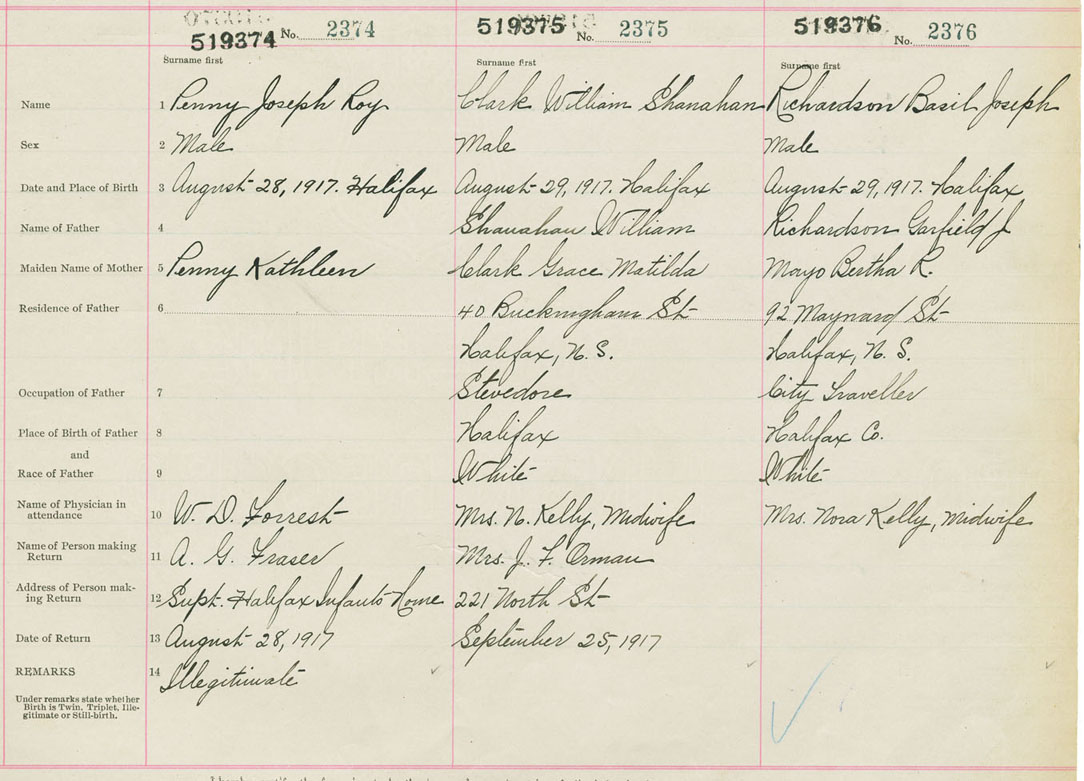 519374 No. 2374 519375 No. 2375 519376 No. 2376
Surname first Surname first Surname first
Name 1 Penny Joseph Roy Clark William Shanahan Richardson Basil Joseph
Sex 2 Male Male Male
Date and Place of Birth 3 August 28, 1917. Halifax August 29, 1917. Halifax August 29, 1917. Halifax
Name of Father 4 Shanahan William Richardson Garfield J
Maiden Name of Mother 5 Penny Kathleen Clark Grace Matilda Mayo Bertha R.
Residence of Father 6 40 Buckingham St 92 Maynard St
Halifax, N. S. Halifax, N. S.
Occupation of Father 7 Stevedore City Traveller
Place of Birth of Father 8 Halifax Halifax Co.
and
Race of Father 9 White White
Name of Physician in
attendance 10 W. D. Forrest Mrs. N. Kelly, Midwife Mrs. Nora Kelly, Midwife
Name of Person making
Return 11 A. G. Fraser Mrs. J. F. Orman
Address of Person mak-
ing Return 12 Supt. Halifax Infants Home 221 North St
Date of Return 13 August 28, 1917 September 25, 1917
REMARKS 14 Illegitimate
Under remarks state whether
Birth is Twin, Triplet, Ille-
gitimate or Still-birth.